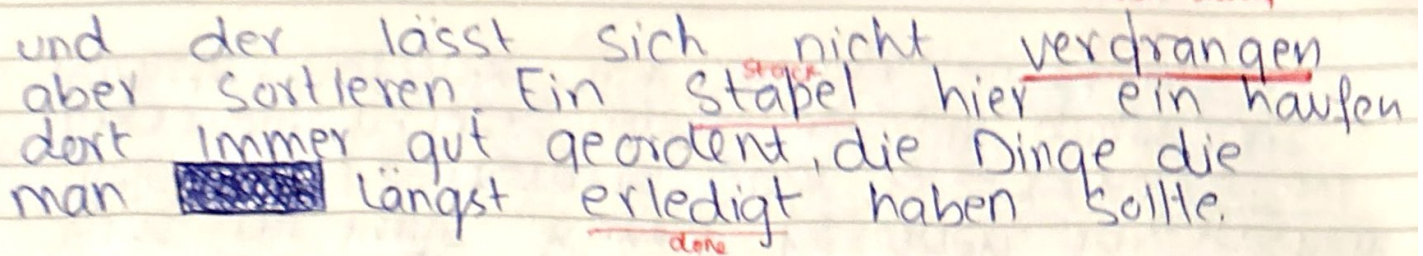 und der lässt sich nicht verdrangen
stack
aber Sortieren. Ein Stapel hier ein haufen
dort Immer gut geordent, die Dinge die
man längst erledigt haben Sollte.
done